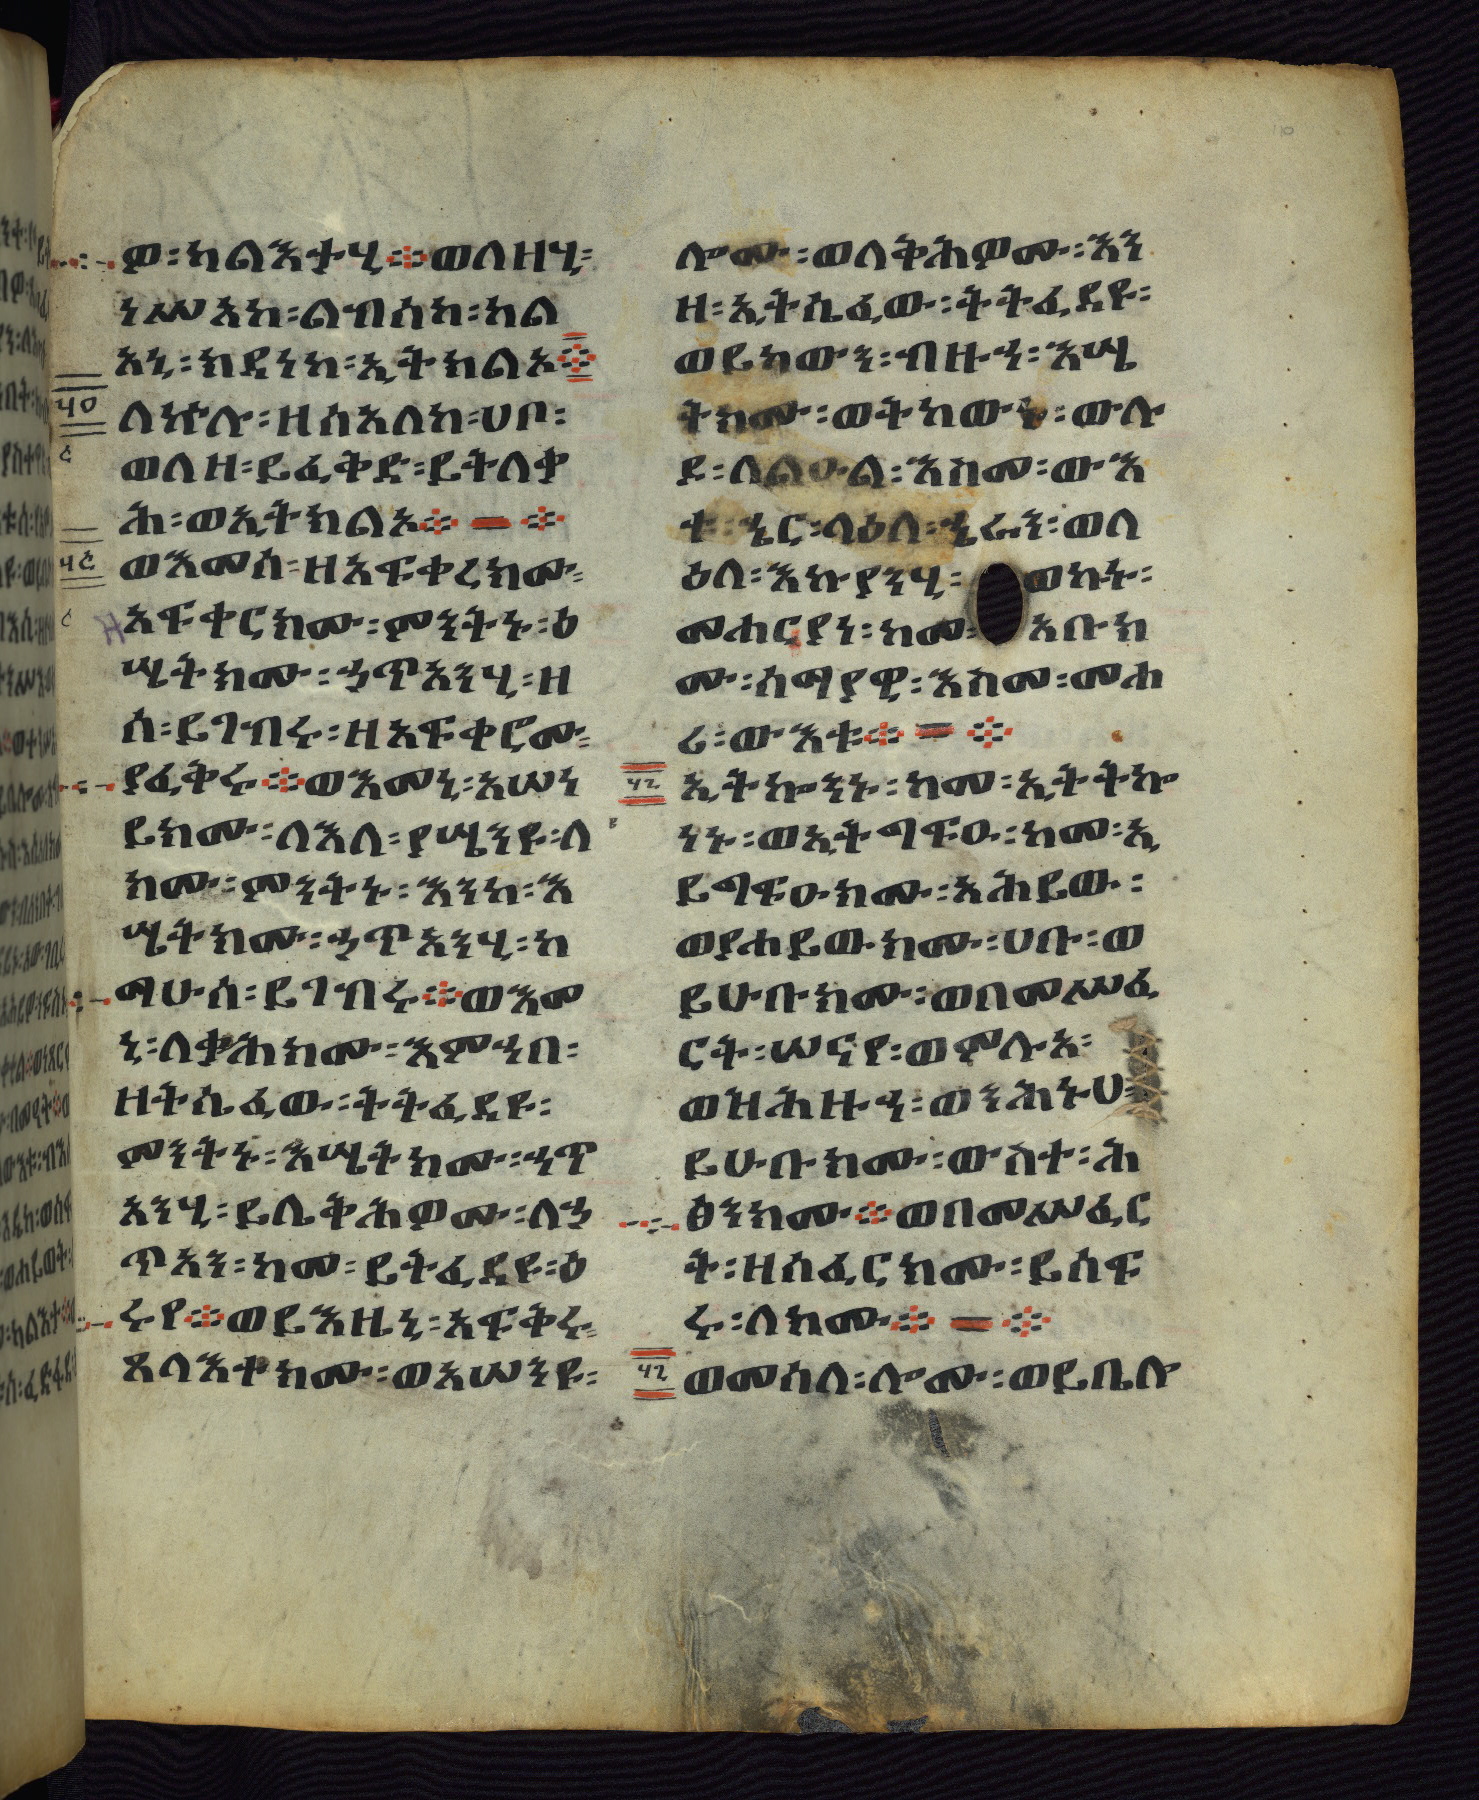 ዎ፡ካልእተሂ፨ወለዘሂ፡
ነሥአከ፡ልብሰከ፡ካል
አኒ፡ክዳነከ፡ኢትክልእ፨
ለኵሉ፡ዘሰአለከ፡ሀቦ፡
ወለዘ፡ይፈቅድ፡ይትለቃ
ሕ፡ወኢትክልእ፨ ፨
ወእመሰ፡ዘአፍቀረክሙ፡
አፍቀርክሙ፡ምንትኑ፡ዕ
ሤትክሙ፡ኃጥአንሂ፡ዘ
ሰ፡ይገብሩ፡ዘአፍቀሮሙ፡
ያፈቅሩ፨ወእመኒ፡አሠነ
ይክሙ፡ለእለ፡ያሤንዩ፡ለ
ክሙ፡ምንትኑ፡እንከ፡እ
ሤትክሙ፡ኃጥአንሂ፡ከ
ማሁሰ፡ይገብሩ፨ወእመ
ኒ፡ለቃሕክሙ፡እምኀበ፡
ዘትሴፈውዉ፡ትትፈደዩ፡
ምንትኑ፡እሤትክሙ፡ኀጥ
አንሂ፡ይሌቅሕዎሙ፡ለኃ
ጥአን፡ከመ፡ይትፈደዩ፡ዕ
ሩየ፨ወይእዜኒ፡አፍቅሩ፡
ጸላእተክሙ፡ወአሠንዩ፡
ሎሙ፡ወለቅሕዎሙ፡እን
ዘ፡ኢትሴፈዉ፡ትትፈደዩ፡
ወይከውን፡ብዙኀ፡እሤ
ትክሙ፡ወትከውኑ፡ውሉ
ደ፡ለልዑል፡እስመ፡ውእ
ቱ፡ኄር፡ላዕለ፡ኄራን፡ወለ
ዕለ፡እኩያንሂ፡ወኩኑ፡
መሐርያነ፡ከመ፡አቡክ
ሙ፡ሰማያዊ፡እስመ፡መሐ
ሪ፡ውእቱ፨ ፨
ኢትኰንኑ፡ከመ፡ኢትትኰ
ነኑ፡ወኢትግፍዑ፡ከመ፡ኢ
ይግፍዑክሙ፡አሕይው፡
ወያሐይውክሙ፡ሀቡ፡ወ
ይሁቡክሙ፡ወበመሥፈ
ርት፡ሠናየ፡ወምሉአ፡
ወዝሕዙኀ፡ወንሕኑሀ፡
ይሁቡክሙ፡ውስተ፡ሕ
ፅንክሙ፨ወበመሥፈር
ት፡ዘሰፈርክሙ፡ይሰፍ
ሩ፡ለክሙ፨ ፨
ወመሰለ፡ሎሙ፡ወይቤሎ